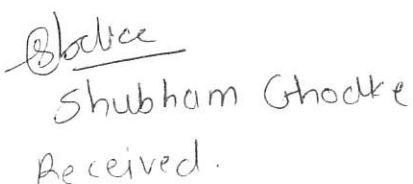 Shubham Ghodke
Received.